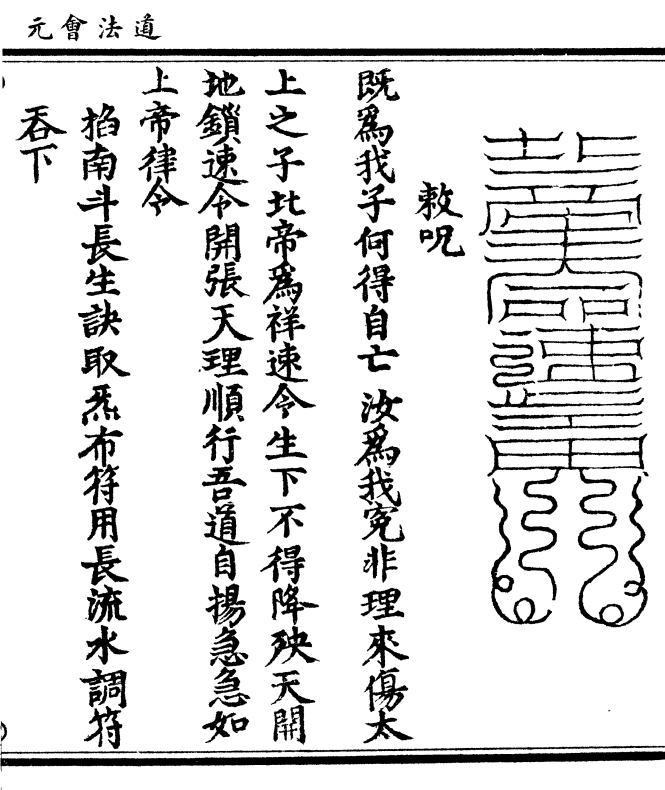 道法會元
敕呪
既爲我子何得自亡 汝爲我冤非理來傷太
上之子北帝爲祥速令生下不得降殃天開
地鎖速令開張天理順行吾道自揚急急如
上帝律令
掐南斗長生訣取炁布符用長流水調符
吞下